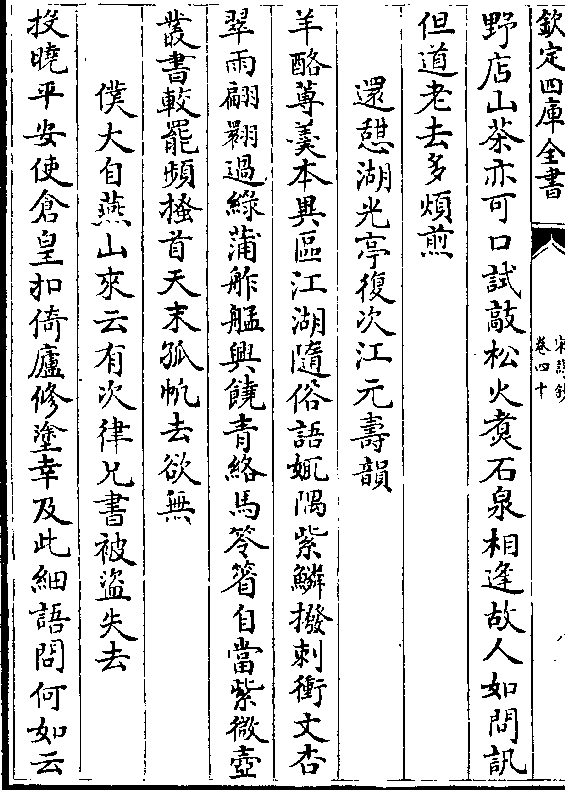 欽定四庫全書
卷四十
野店山茶亦可口試敲松火煑石泉相逢故人如問訊
但道老去多煩煎
還憇湖光亭復次江元壽韻
羊酪蓴羹本異區江湖隨俗語娵隅紫鱗撥刺衝文杏
翠雨翩翾過綠蒲舴艋興饒青絡馬笭箵自當紫微壺
叢書較罷頻搔首天末孤帆去欲無
僕大自燕山來云有次律兄書被盜失去
投曉平安使倉皇扣倚廬修塗幸及此細語問何如云